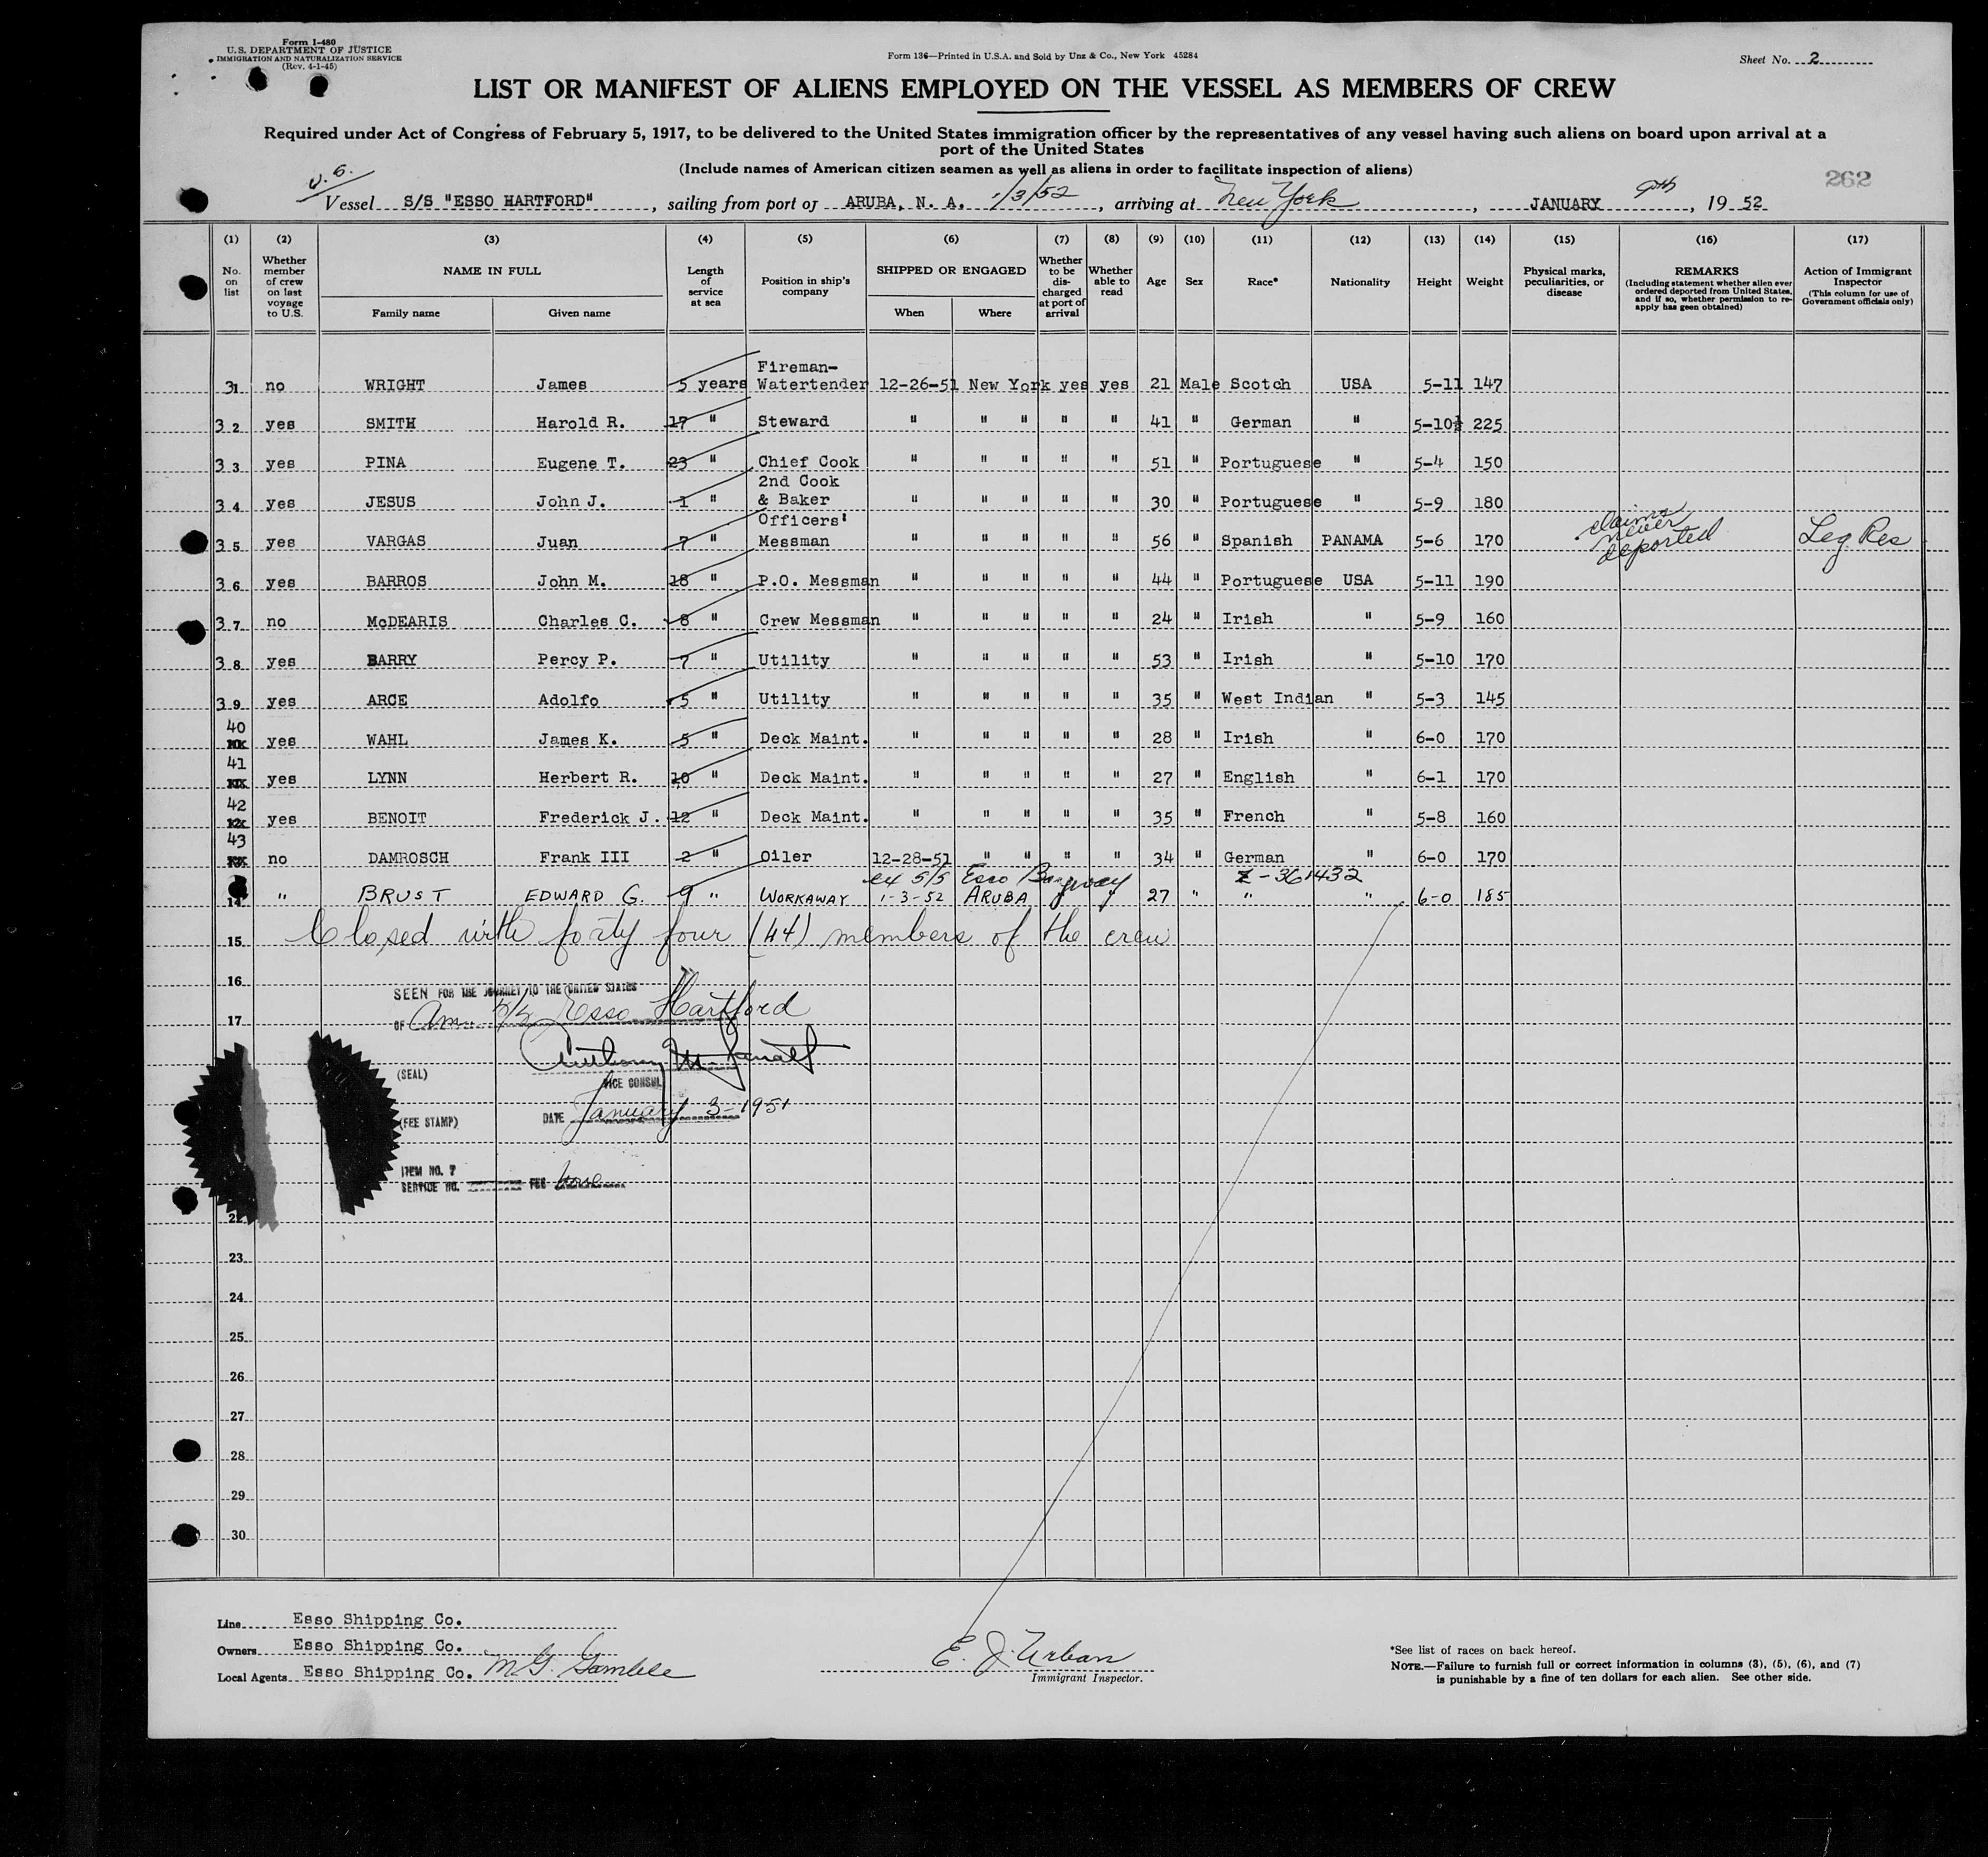 Form I-480
U.S. DEPARTMENT OF JUSTICE
IMMIGRATION AND NATURALIZATION SERVICE
(Rev. 4-1-45)
Form 136—Printed in U.S.A. and Sold by Unz & Co., New York 45284
Sheet No. 2
LIST OR MANIFEST OF ALIENS EMPLOYED ON THE VESSEL AS MEMBERS OF CREW
Required under Act of Congress of February 5, 1917, to be delivered to the United States immigration officer by the representatives of any vessel having such aliens on board upon arrival at a
port of the United States
(Include names of American citizen seamen as well as aliens in order to facilitate inspection of aliens)
262
Vessel S/S "ESSO HARTFORD", sailing from port of ARUBA, N. A. 1/3/52, arriving at New York, JANUARY 9th, 19 52
(1) (2) (3) (4) (5) (6) (7) (8) (9) (10) (11) (12) (13) (14) (15) (16) (17)
No. on list
Whether member of crew on last voyage to U.S.
NAME IN FULL
Family name
Given name
Length of service at sea
Position in ship's company
SHIPPED OR ENGAGED
When
Where
Whether to be discharged at port of arrival
Whether able to read
Age
Sex
Race*
Nationality
Height
Weight
Physical marks, peculiarities, or disease
REMARKS
(Including statement whether alien ever ordered deported from United States, and if so, whether permission to reapply has geen obtained)
Action of Immigrant Inspector
(This column for use of Government officials only)
31 no WRIGHT James 5 years Fireman-Watertender 12-26-51 New York yes yes 21 Male Scotch USA 5-11 147
32 yes SMITH Harold R. 17 " Steward " " " " " 41 " German " 5-10½ 225
33 yes PINA Eugene T. 23 " Chief Cook " " " " " 51 " Portuguese " 5-4 150
34 yes JESUS John J. 1 " 2nd Cook & Baker " " " " " 30 " Portuguese " 5-9 180
35 yes VARGAS Juan 7 " Officers' Messman " " " " " 56 " Spanish PANAMA 5-6 170 claims never deported Leg Res
36 yes BARROS John M. 18 " P.O. Messman " " " " " 44 " Portuguese USA 5-11 190
37 no McDEARIS Charles C. 8 " Crew Messman " " " " " 24 " Irish " 5-9 160
38 yes BARRY Percy P. 7 " Utility " " " " " 53 " Irish " 5-10 170
39 yes ARCE Adolfo 5 " Utility " " " " " 35 " West Indian " 5-3 145
40 yes WAHL James K. 5 " Deck Maint. " " " " " 28 " Irish " 6-0 170
41 yes LYNN Herbert R. 10 " Deck Maint. " " " " " 27 " English " 6-1 170
42 yes BENOIT Frederick J. 12 " Deck Maint. " " " " " 35 " French " 5-8 160
43 no DAMROSCH Frank III 2 " Oiler 12-28-51 " " " " 34 " German " 6-0 170
ex S/S Esso Z-361432
14 " BRUST EDWARD G. 9 " WORKAWAY 1-3-52 ARUBA " " 27 " " " 6-0 185
15 Closed with forty four (44) members of the crew
16
SEEN FOR THE JOURNEY TO THE UNITED STATES
17 OF Am. S/S Esso Hartford
(SEAL)
VICE CONSUL
(FEE STAMP) DATE January 3-1951
ITEM NO. 7
SERVICE NO. FEE None
22
23
24
25
26
27
28
29
30
Line Esso Shipping Co.
Owners Esso Shipping Co.
Local Agents Esso Shipping Co. M. G. Gamble
E. J. Urban
Immigrant Inspector.
*See list of races on back hereof.
NOTE.—Failure to furnish full or correct information in columns (3), (5), (6), and (7)
is punishable by a fine of ten dollars for each alien. See other side.